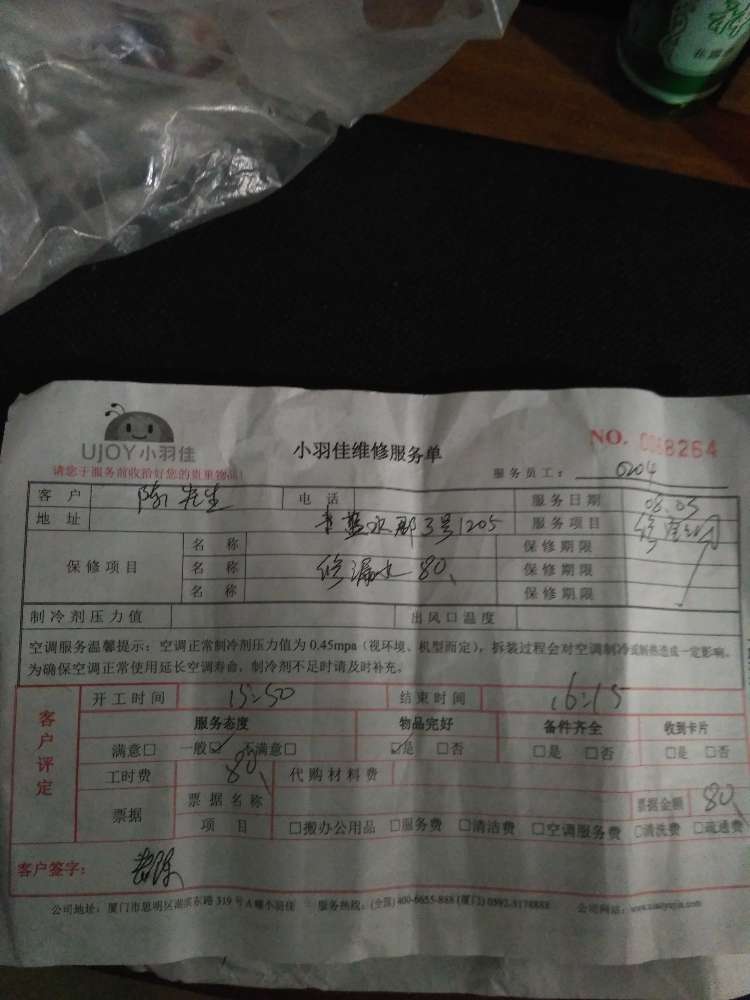 UJOY小羽佳
小羽佳维修服务单
NO. 0068264
请您于服务前收拾好您的贵重物品!
服务员工: 0204
客户 陈先生 电话 服务日期 08.05
地址 蓝水郡3号1205 服务项目
保修项目
名称 保修期限
名称 修漏水 80 保修期限
名称 保修期限
制冷剂压力值 出风口温度
空调服务温馨提示:空调正常制冷剂压力值为0.45mpa(视环境、机型而定),拆装过程会对空调制冷或制热造成一定影响。
为确保空调正常使用延长空调寿命,制冷剂不足时请及时补充。
客户评定
开工时间 15:50 结束时间 16:15
服务态度 物品完好 备件齐全 收到卡片
满意□ 一般☑ 不满意□ ☑是 □否 □是 □否 □是 □否
工时费 80 代购材料费
票据 票据名称 票据金额 80
项目 □搬办公用品 □服务费 □清洁费 □空调服务费 □清洗费 □疏通费
客户签字:
公司地址:厦门市思明区湖滨东路319号A幢小羽佳 服务热线:(全国)400-6655-888 (厦门)0592-5178888 公司网站:www.xiaoyujia.com